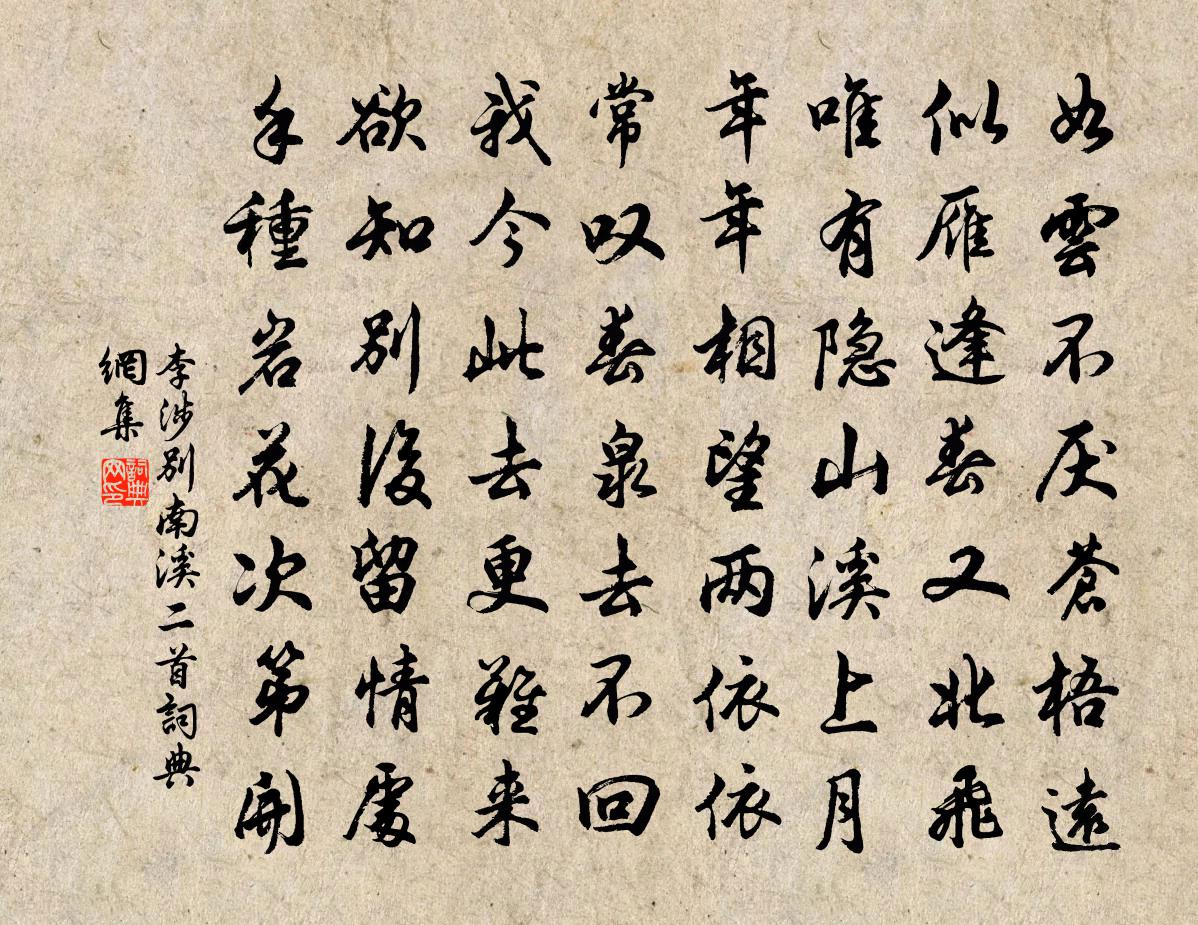 如雲不厌蒼梧遠
似雁逢春又北飛
唯有隐山溪上月
年年相望两依依
常叹春泉去不回
我今此去更難来
欲知別後留情處
手種岩花次第開
李涉別南溪二首詞典
網集
詞典
网印